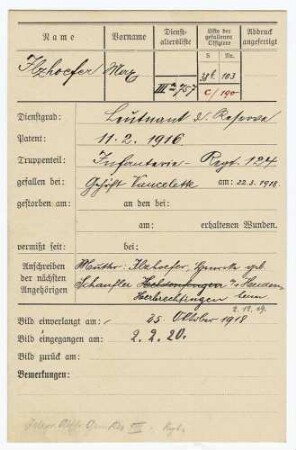 Name Vorname Dienst-altersliste Liste der gefallenen Offiziere Abdruck angefertigt
S Nr.
Ilzhoefer Max 38b 103
IIIa 757 C/190
Dienstgrad: Leutnant d. Reserve
Patent: 11.2.1916
Truppenteil: Infanterie-Regt. 124
gefallen bei: Gehöft Vaucelette am: 22.3.1918
gestorben am: an den bei:
am: erhaltenen Wunden.
vermißt seit: bei:
Anschreiben der nächsten Angehörigen
Mutter: Ilzhoefer, geb.
Schaufler
Herbrechtingen
2.11.19.
Bild einverlangt am: 25. Oktober 1918
Bild eingegangen am: 2.2.20.
Bild zurück am:
Bemerkungen: